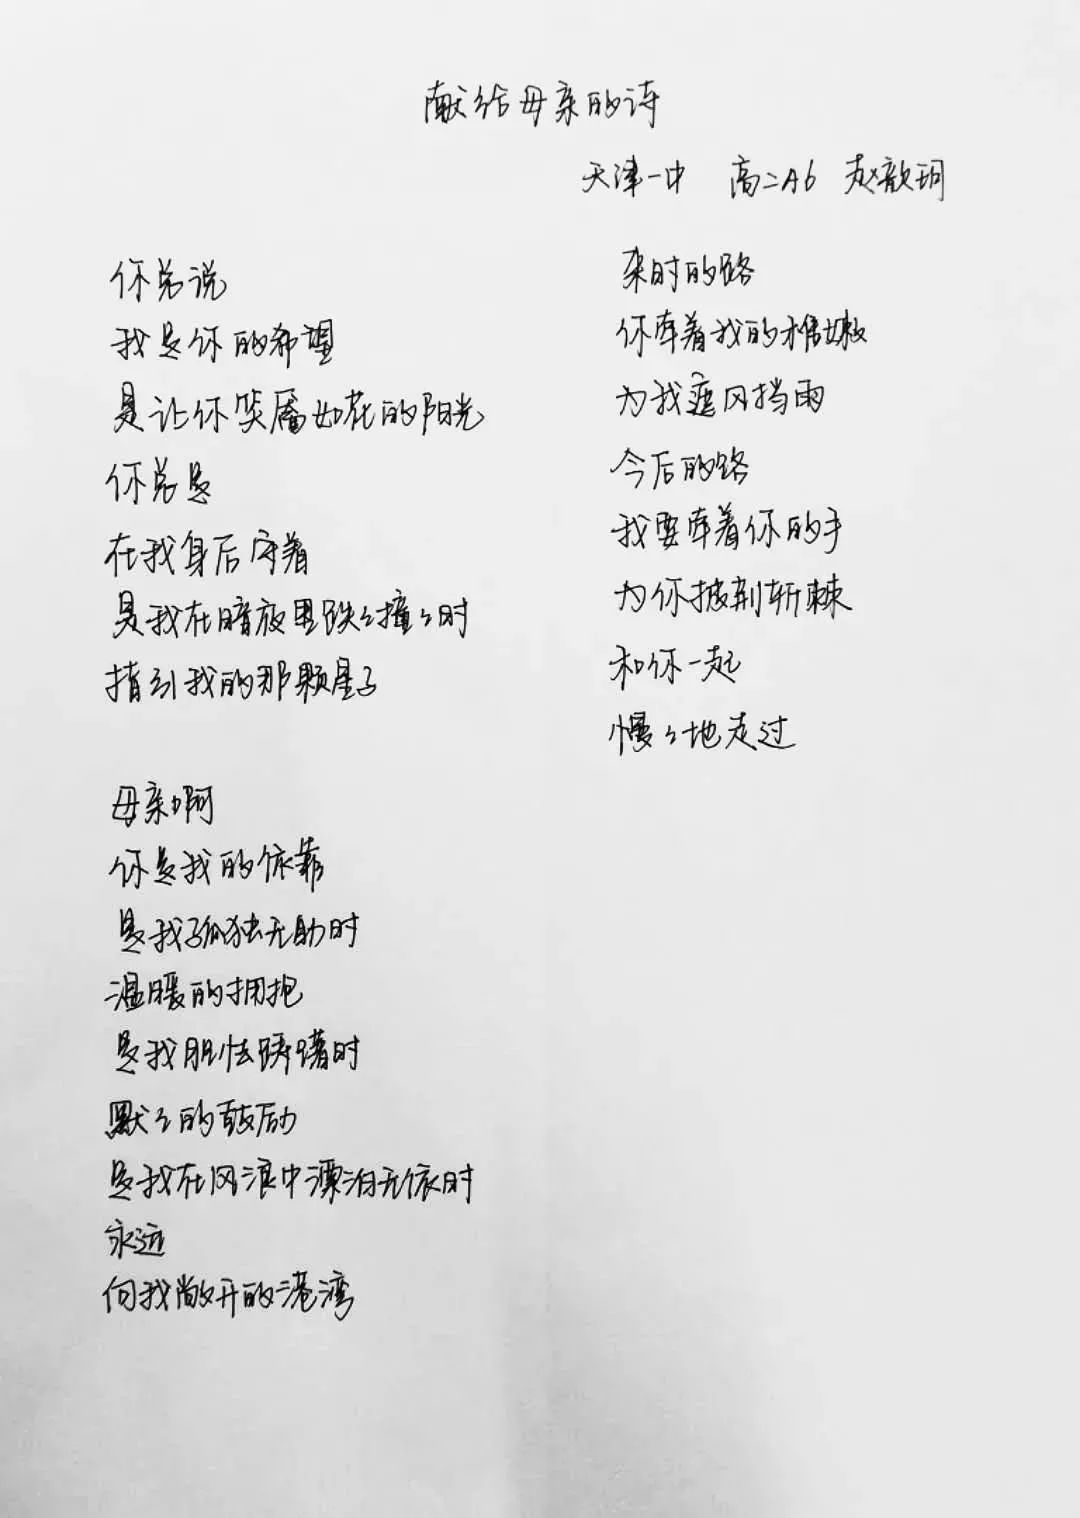 献给母亲的诗
天津一中 高二A6 赵歆玥
你总说
我是你的希望
是让你笑靥如花的阳光
你总是
在我身后守着
是我在暗夜里跌跌撞撞时
指引我的那颗星子
母亲啊
你是我的依靠
是我孤独无助时
温暖的拥抱
是我胆怯踌躇时
默默的鼓励
是我在风浪中漂泊无依时
永远
向我敞开的港湾
来时的路
你牵着我的稚嫩
为我遮风挡雨
今后的路
我要牵着你的手
为你披荆斩棘
和你一起
慢慢地走过